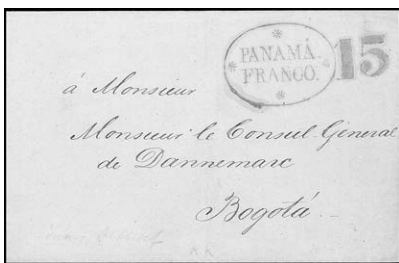 PANAMÁ
FRANCO.
15
á Monsieur
Monsieur le Consul Géneral
de Dannemarc
Bogotá